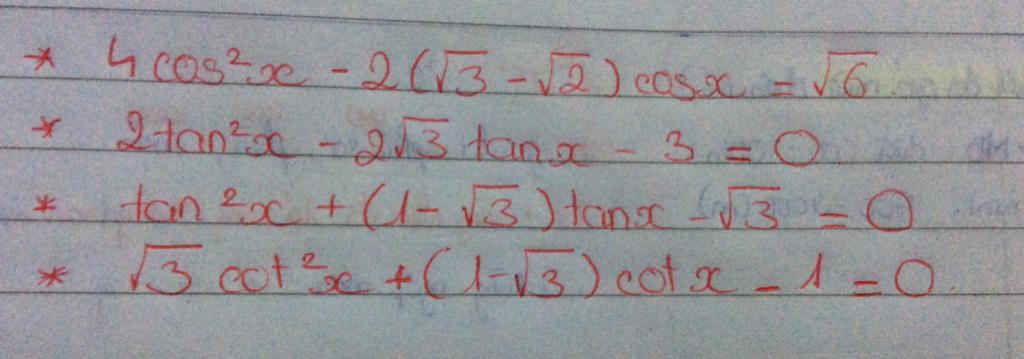 * 4cos²x - 2(√3 - √2)cosx = √6
* 2tan²x - 2√3 tanx - 3 = 0
* tan²x + (1 - √3)tanx - √3 = 0
* √3 cot²x + (1 - √3)cotx - 1 = 0.